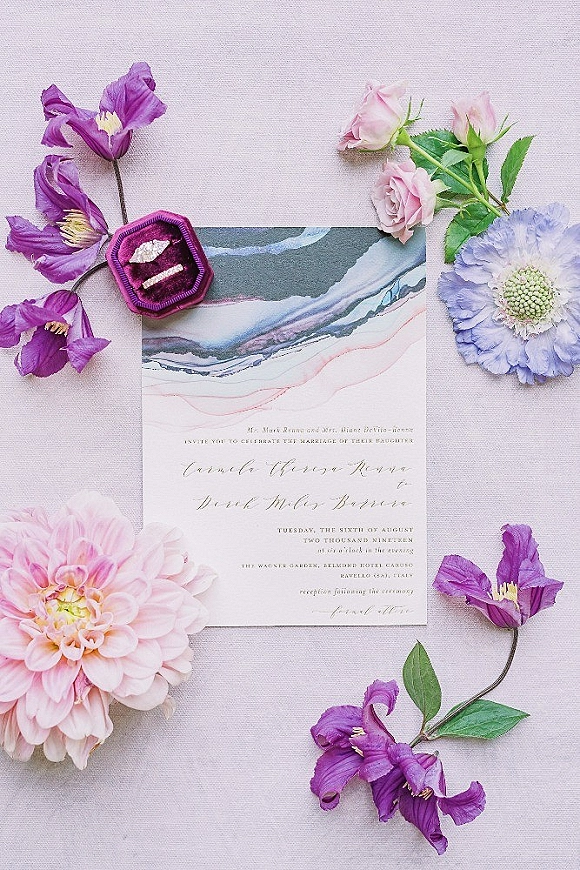 Mr. Mark Renna and Mrs. Diane DeVito-Renna
INVITE YOU TO CELEBRATE THE MARRIAGE OF THEIR DAUGHTER
Carmela Theresa Renna
to
Derek Miles Barrera
TUESDAY, THE SIXTH OF AUGUST
TWO THOUSAND NINETEEN
at six o'clock in the evening
THE WAGNER GARDEN, BELMOND HOTEL CARUSO
RAVELLO (SA), ITALY
reception following the ceremony
formal attire